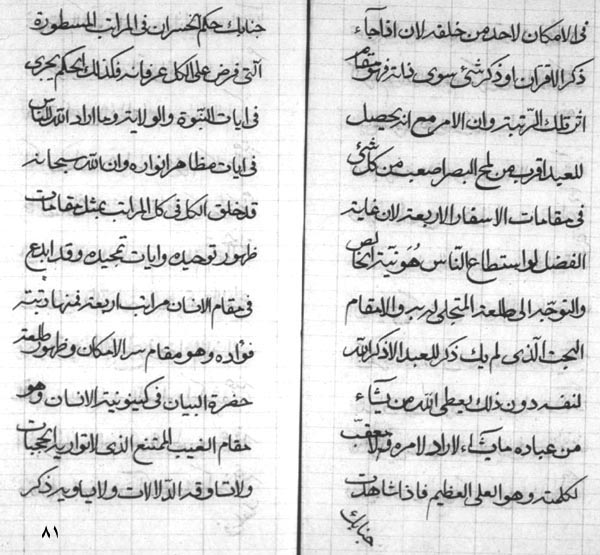 فی الامکان لاحد من خلقه لان اذا جاء
ذکر الاقران او ذکر شئ سوی ذاته فهو مقام
اثر تلك الرتبة وان الامر مع انه یحصل
للعبد اقرب من لمح البصر اصعب من کل شئ
فی مقامات الاسفار الاربعة لان غایة
الفضل لو استطاع النّاس هُو نیّة الخالص
والتوجه الی طلعة المتجلی لدیه والا مقام
البحت الّذی لم یك ذکر للعبد الا ذکر الله
لنفسه دون ذلك یعطی الله من یشآء
من عباده ما یشآء لا راد لامره ولا معقّب
لکلمته وهو العلی العظیم فاذا شاهدت
جنابك
جنابك حکم الخسران فی المراتب المسطورة
الّتی فرض علی الکل عرفانه فکذلك الحکم یجری
فی ایات النبّوة والولایة وما اراد الله للناس
فی ایات مظاهر انواره وان الله سبحانه
قد خلق الکل فی کل المراتب بمثل مقامات
ظهور توحیده وایات تمجیده وقد ابدع
فی مقام الانسان مراتب اربعة فمنها رتبة
فؤاده وهو مقام سر الامکان وظهور طلعة
حضرة البیان فی کینونیة الانسان وهو
مقام الغیب الممتنع الذی لا تواریه الحجبات
ولا تساوقه الدّلالات ولا یساویه ذکر
٨١